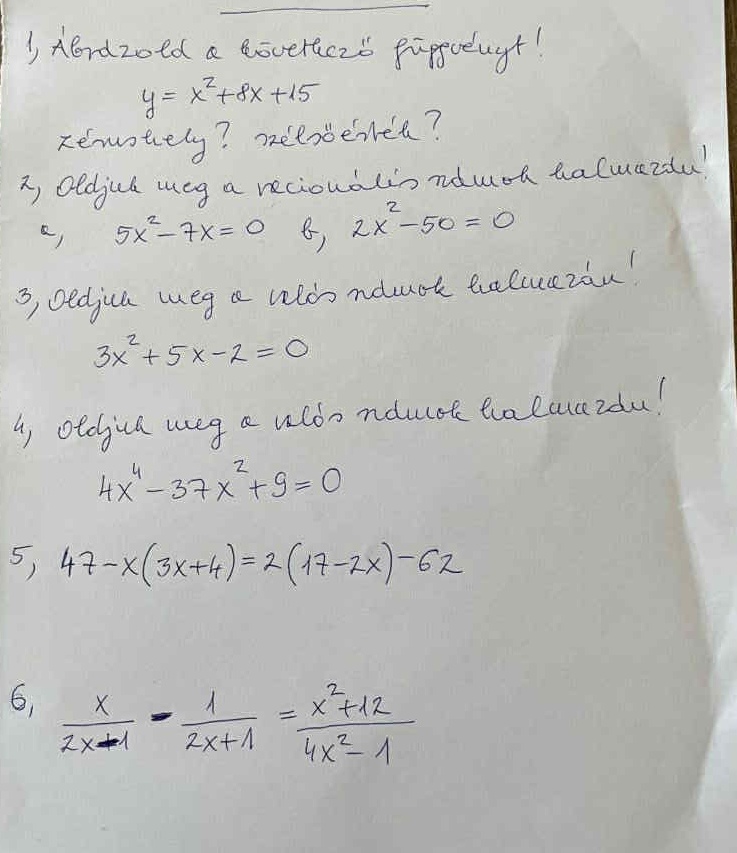 1, Ábrázold a következő függvényt!
y = x²+8x+15
zérushely? szélsőérték?
2, Oldjuk meg a racionális számok halmazán!
a, 5x²-7x=0 b, 2x²-50=0
3, Oldjuk meg a valós számok halmazán!
3x²+5x-2=0
4, Oldjuk meg a valós számok halmazán!
4x⁴-37x²+9=0
5, 47-x(3x+4)=2(17-2x)-62
6, x/(2x-1) - 1/(2x+1) = (x²+12)/(4x²-1)